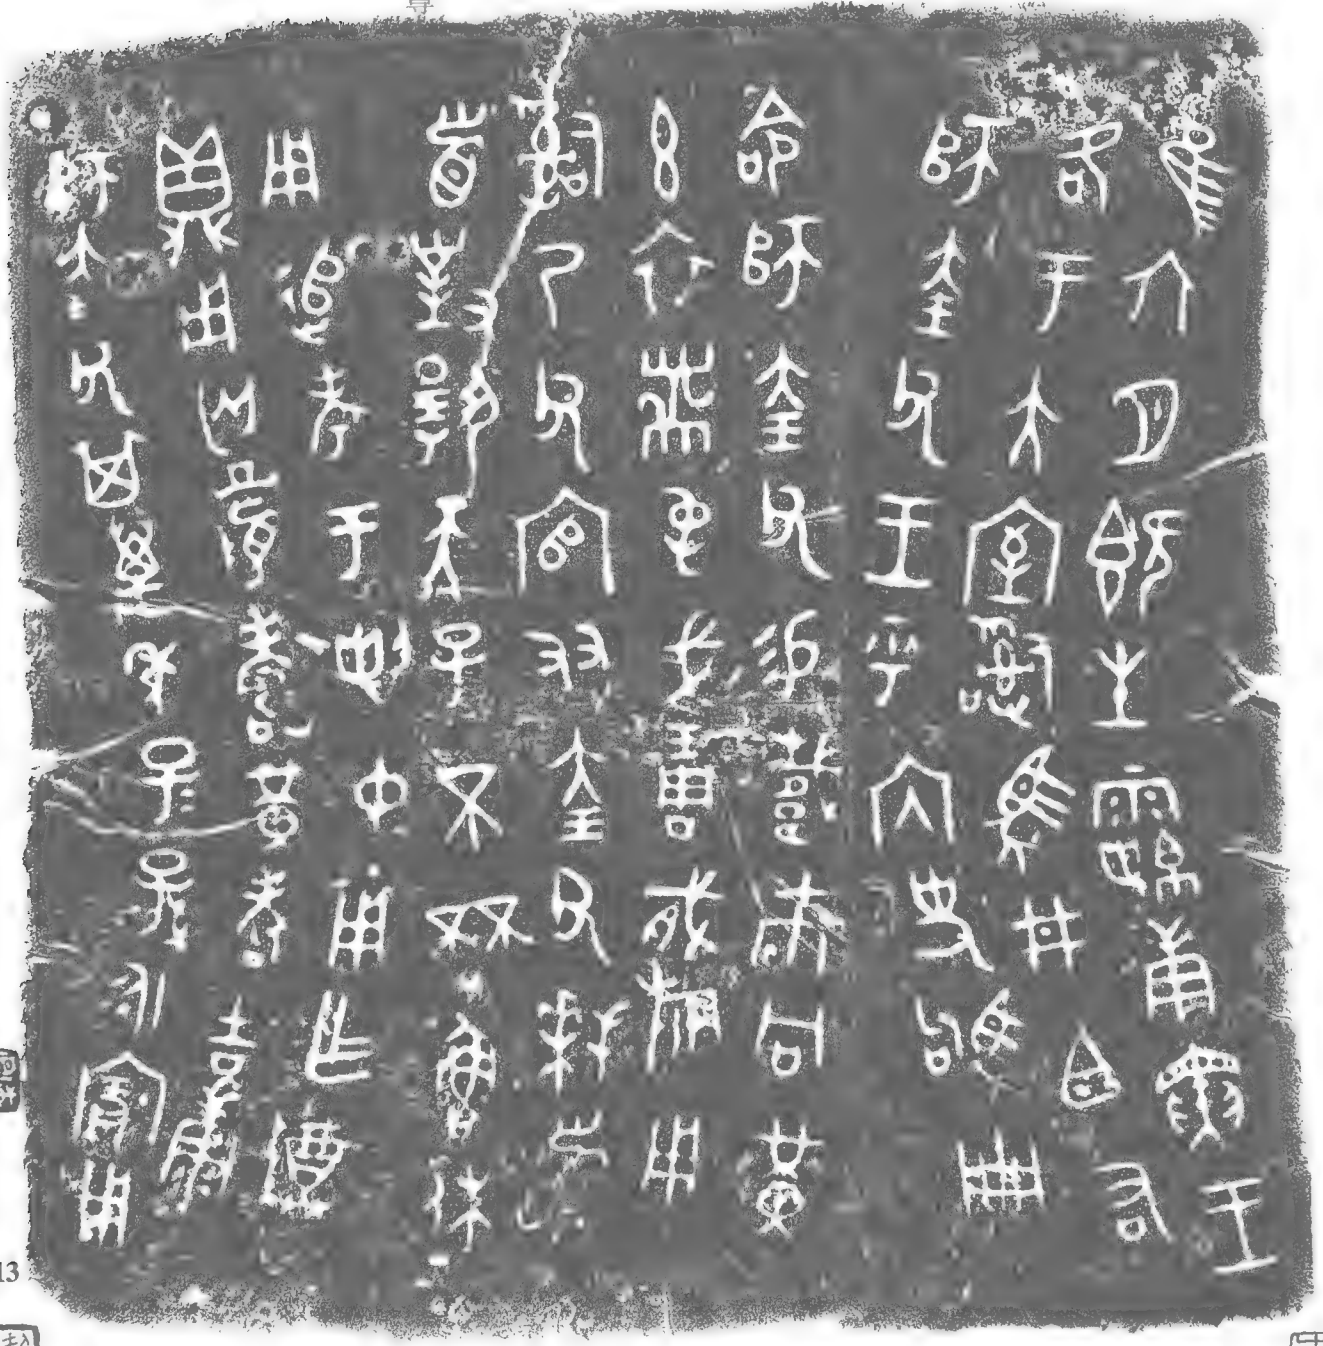 隹六月既生霸庚寅王
各于大室𤔲馬井白右
師𡘇父王乎內史駒冊
命師𡘇父易載巿冋黃
玄衣黹屯戈琱胾旂用
𤔲乃父官友𡘇父拜𩒨
首對揚天子不㔻魯休
用追考于剌中用乍尊
鼎用匄眉壽黃耇吉康
師𡘇父其萬年子孫永寶用
13